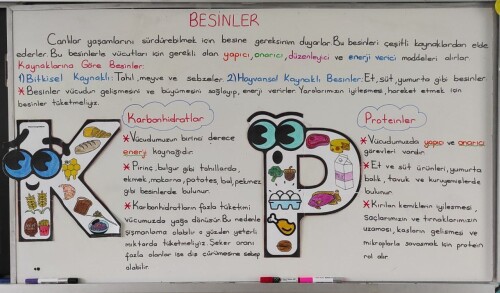 BESİNLER
Canlılar yaşamlarını sürdürebilmek için besine gereksinim duyarlar. Bu besinleri çeşitli kaynaklardan elde
ederler. Bu besinlerle vücutları için gerekli olan yapıcı, onarıcı, düzenleyici ve enerji verici maddeleri alırlar.
Kaynaklarına Göre Besinler:
1) Bitkisel Kaynaklı: Tahıl, meyve ve sebzeler. 2) Hayvansal Kaynaklı Besinler: Et, süt, yumurta gibi besinler.
* Besinler vücudun gelişmesini ve büyümesini sağlayıp, enerji verirler. Yaralarımızın iyileşmesi, hareket etmek için
besinler tüketmeliyiz.
Karbonhidratlar
* Vücudumuzun birinci derece
enerji kaynağıdır.
* Pirinç, bulgur gibi tahıllarda,
ekmek, makarna, patates, bal, pekmez
gibi besinlerde bulunur.
* Karbonhidratların fazla tüketimi
vücumuzda yağa dönüşür. Bu nedenle
şişmanlama olabilir o yüzden yeterli
miktarda tüketmeliyiz. Şeker oranı
fazla olanlar ise diş çürümesine sebep
olabilir.
Proteinler
* Vücudumuzda yapıcı ve onarıcı
görevleri vardır.
* Et ve süt ürünleri, yumurta
balık, tavuk ve kuruyemişlerde
bulunur.
* Kırılan kemiklerin iyileşmesi,
saçlarımızın ve tırnaklarımızın
uzaması, kasların gelişmesi ve
mikroplarla savaşmak için protein
rol alır.
K
P